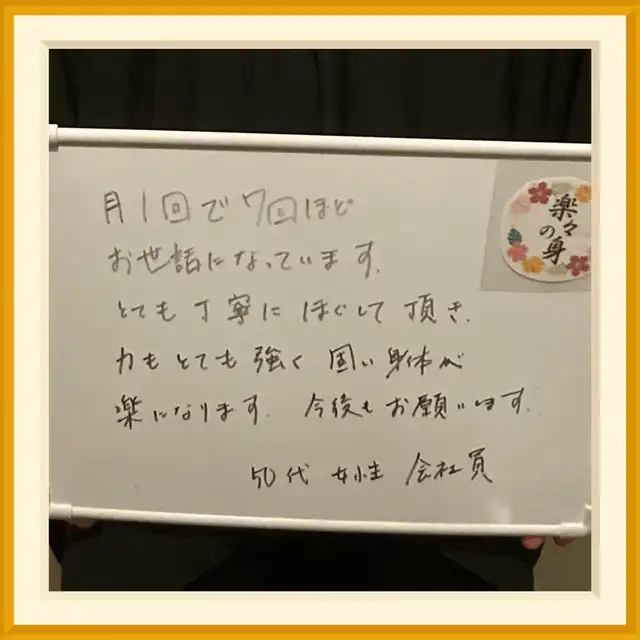 月1回で7回ほど
お世話になっています。
とても丁寧にほぐして頂き、
力もとても強く固い身体が
楽になります。今後もお願いします。
50代 女性 会社員
楽々
の身